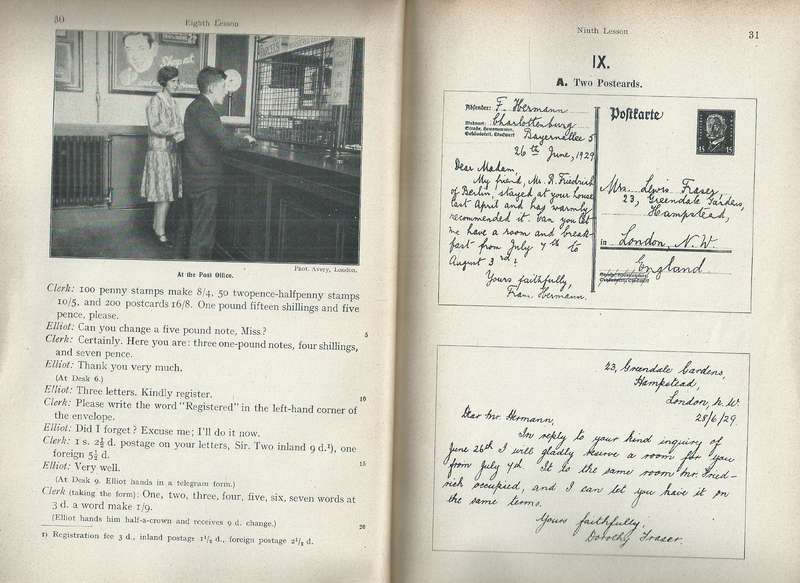 30
Eighth Lesson
Shop at
At the Post Office.
Phot. Avery, London.
Clerk: 100 penny stamps make 8/4, 50 twopence-halfpenny stamps
10/5, and 200 postcards 16/8. One pound fifteen shillings and five
pence, please.
Elliot: Can you change a five pound note, Miss?
5
Clerk: Certainly. Here you are: three one-pound notes, four shillings,
and seven pence.
Elliot: Thank you very much.
(At Desk 6.)
Elliot: Three letters. Kindly register.
10
Clerk: Please write the word "Registered" in the left-hand corner of
the envelope.
Elliot: Did I forget? Excuse me; I'll do it now.
Clerk: 1 s. 2½ d. postage on your letters, Sir. Two inland 9 d.¹), one
foreign 5½ d.
Elliot: Very well.
15
(At Desk 9. Elliot hands in a telegram form.)
Clerk (taking the form): One, two, three, four, five, six, seven words at
3 d. a word make 1/9.
(Elliot hands him half-a-crown and receives 9 d. change.)
20
1) Registration fee 3 d., inland postage 1½ d., foreign postage 2½ d.
Ninth Lesson
31
IX.
A. Two Postcards.
Absender: F. Hermann
Wohnort: Charlottenburg
Straße, Hausnummer,
Bayernallee 5
26th June, 1929
Dear Madam,
My friend, Mr. R. Friedrich
of Berlin, stayed at your house
last April and has warmly
recommended it. Can you let
me have a room and break-
fast from July 7th to
August 3rd?
Yours faithfully,
Franz Hermann.
Postkarte
15 15
Mrs. Lewis Fraser,
23, Greendale Gardens,
Hampstead,
in London, N. W.
England.
23, Greendale Gardens,
Hampstead,
London, N. W
28/6/29.
Dear Mr. Hermann,
In reply to your kind inquiry of
June 26th I will gladly reserve a room for you
from July 7th It is the same room Mr. Fried-
rich occupied, and I can let you have it on
the same terms.
Yours faithfully,
Dorothy Fraser.